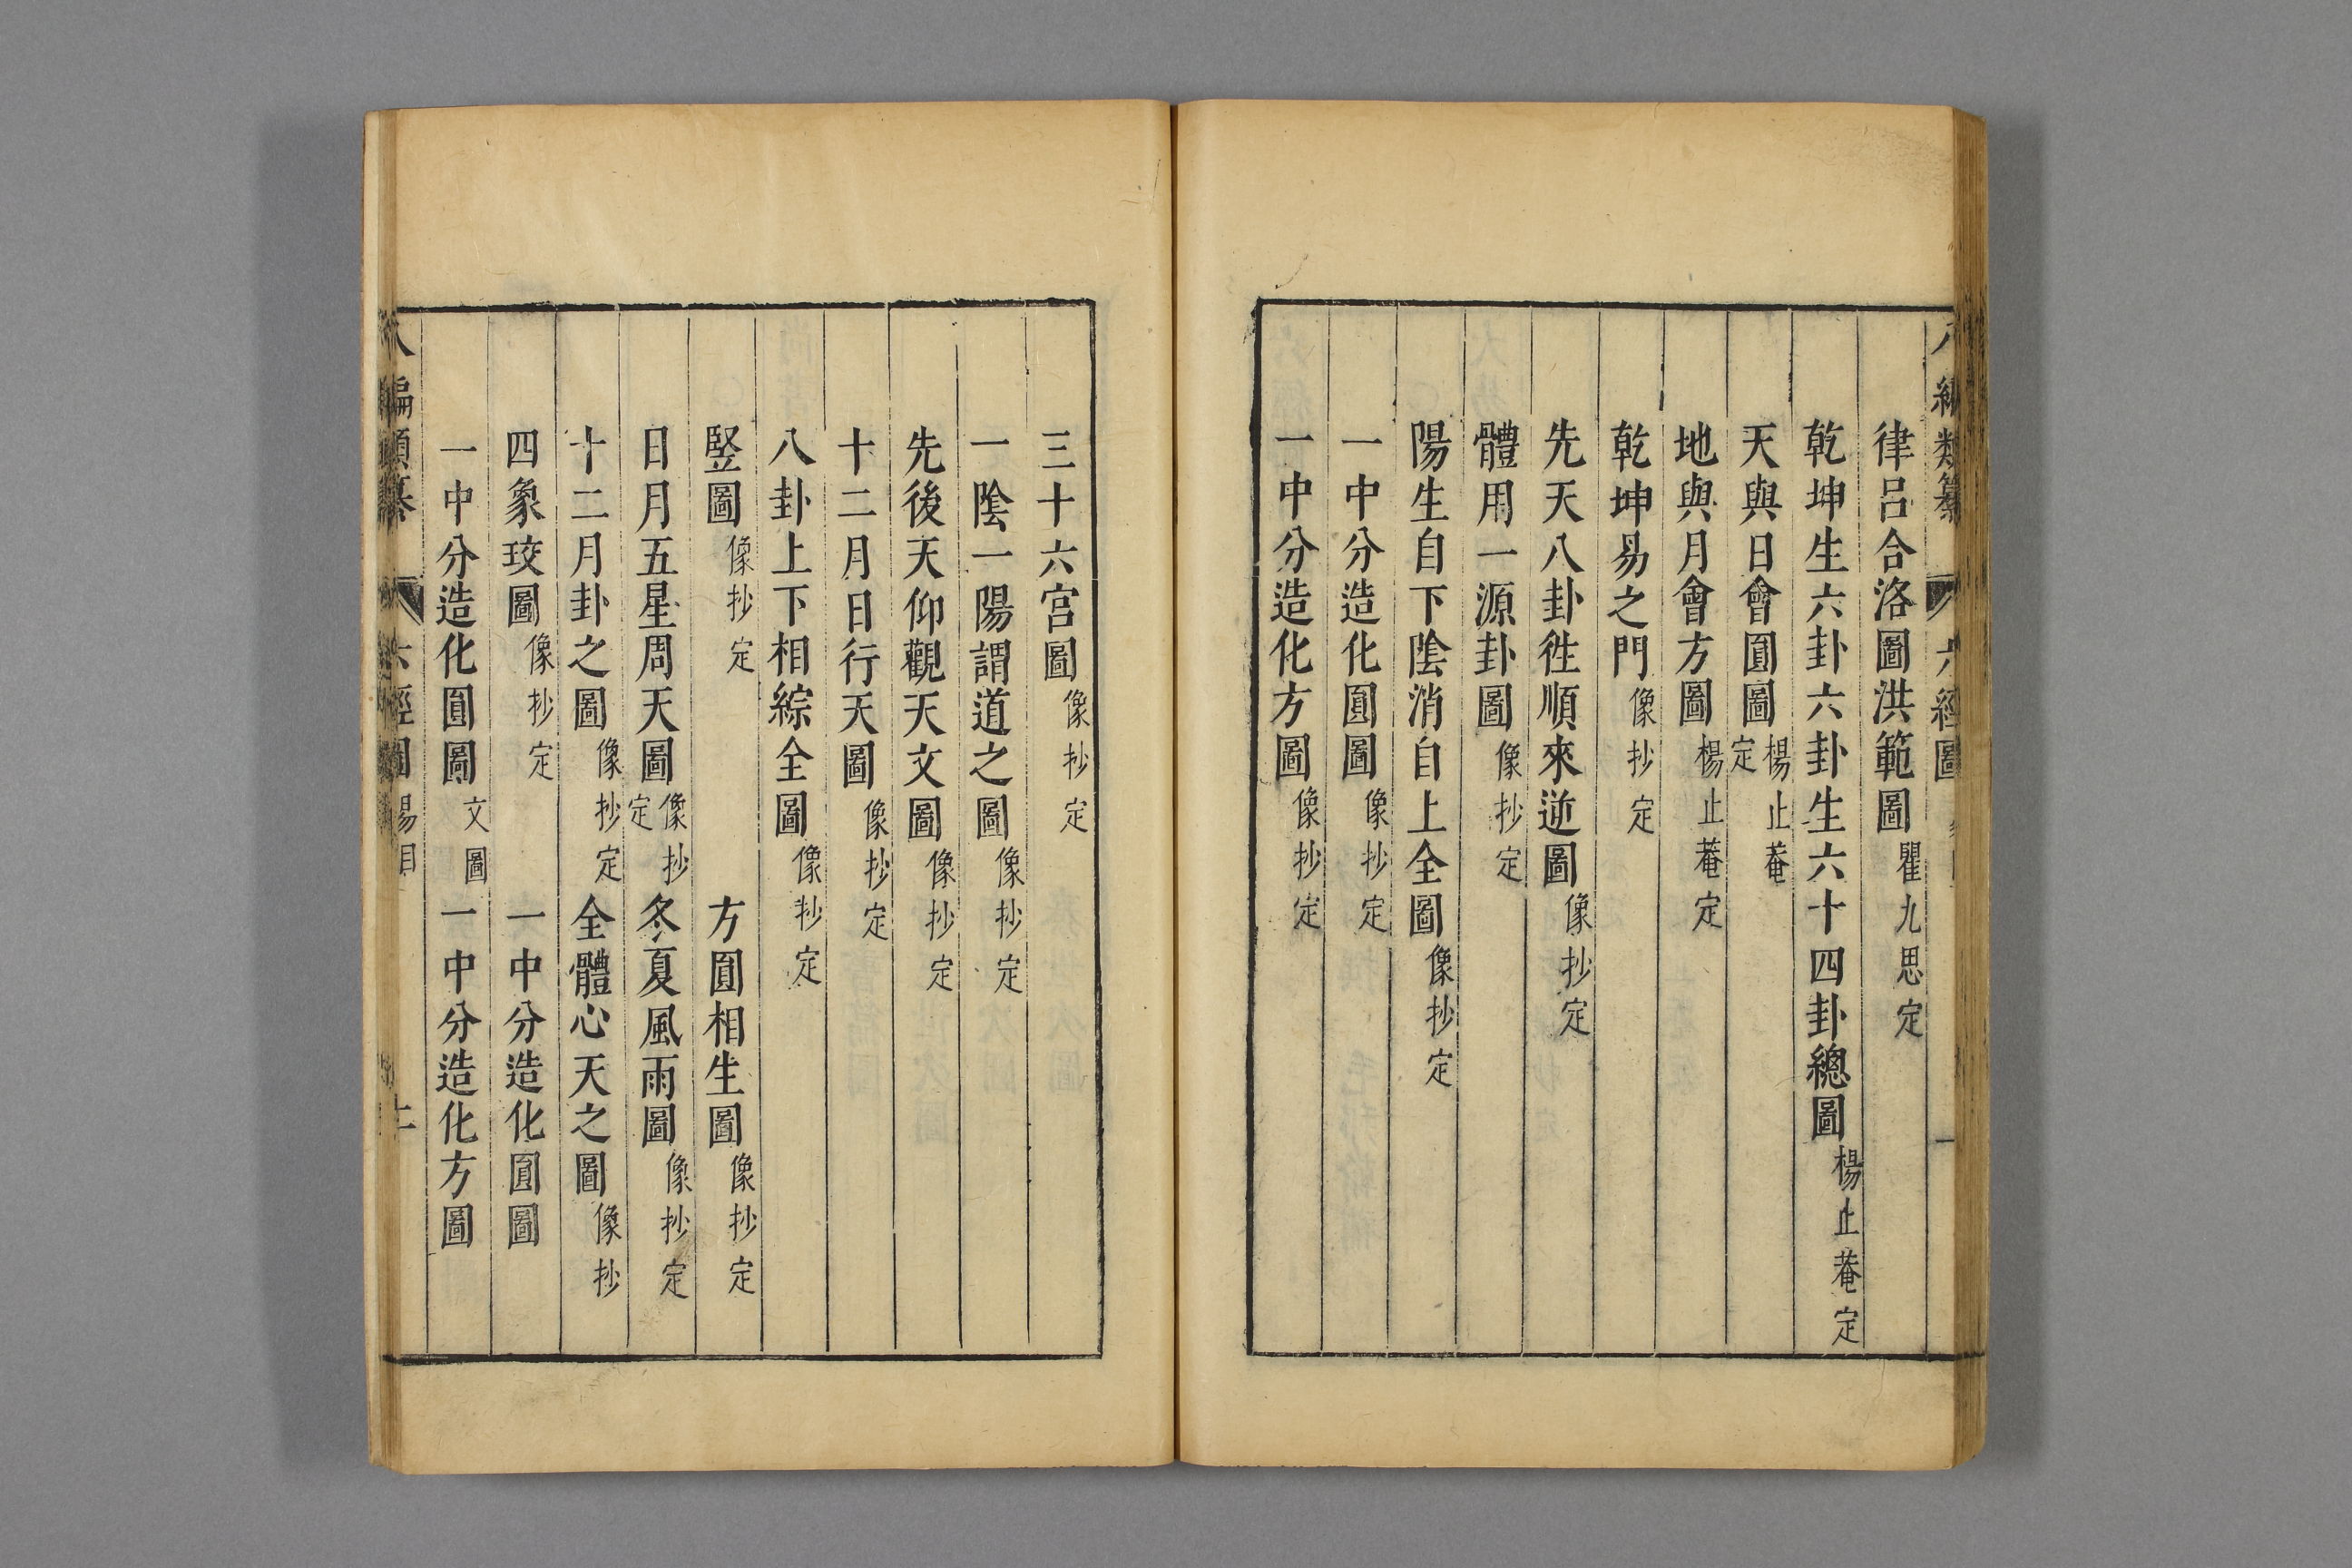 律呂合洛圖洪範圖瞿九思定
乾坤生六卦六卦生六十四卦總圖楊止菴定
天與日會圓圖楊止菴定
地與月會方圖楊止菴定
乾坤易之門像抄定
先天八卦徃順來逆圖像抄定
體用一源卦圖像抄定
陽生自下陰消自上全圖像抄定
一中分造化圓圖像抄定
一中分造化方圖像抄定
三十六宮圖像抄定
一陰一陽謂道之圖像抄定
先後天仰觀天文圖像抄定
十二月日行天圖像抄定
八卦上下相綜全圖像抄定
竪圖像抄定 方圓相生圖像抄定
日月五星周天圖像抄定 冬夏風雨圖像抄定
十二月卦之圖像抄定 全體心天之圖像抄
四象珓圖像抄定 一中分造化圓圖
一中分造化圓圖文圖 一中分造化方圖
八編類纂 六經圖